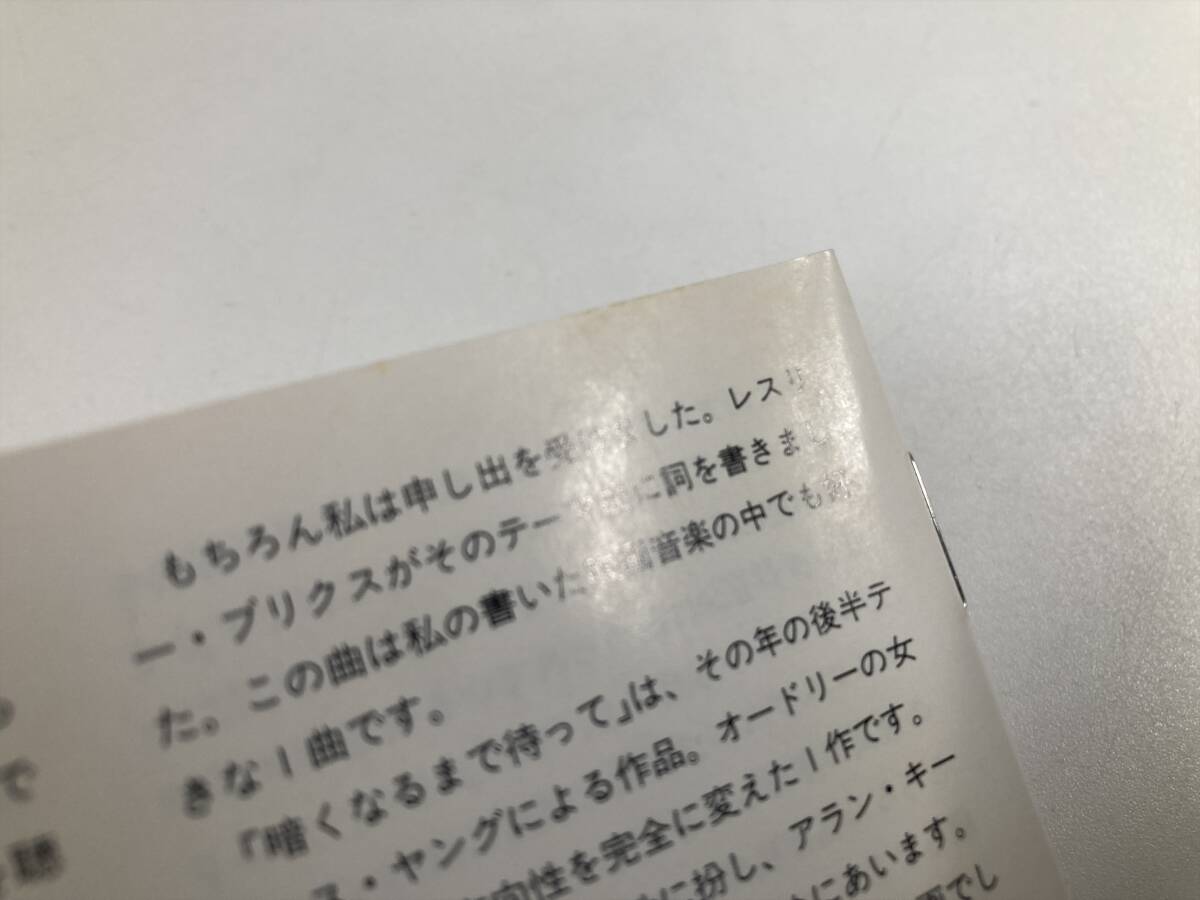 もちろん私は申し出を受 した。レスリ
ー・ブリクスがそのテー に詞を書きまし
た。この曲は私の書いた 音楽の中でも
きな1曲です。
「暗くなるまで待って」は、その年の後半テ
ス・ヤングによる作品。オードリーの女
向性を完全に変えた1作です。
に扮し、アラン・キー
にあいます。
でし
で
聴